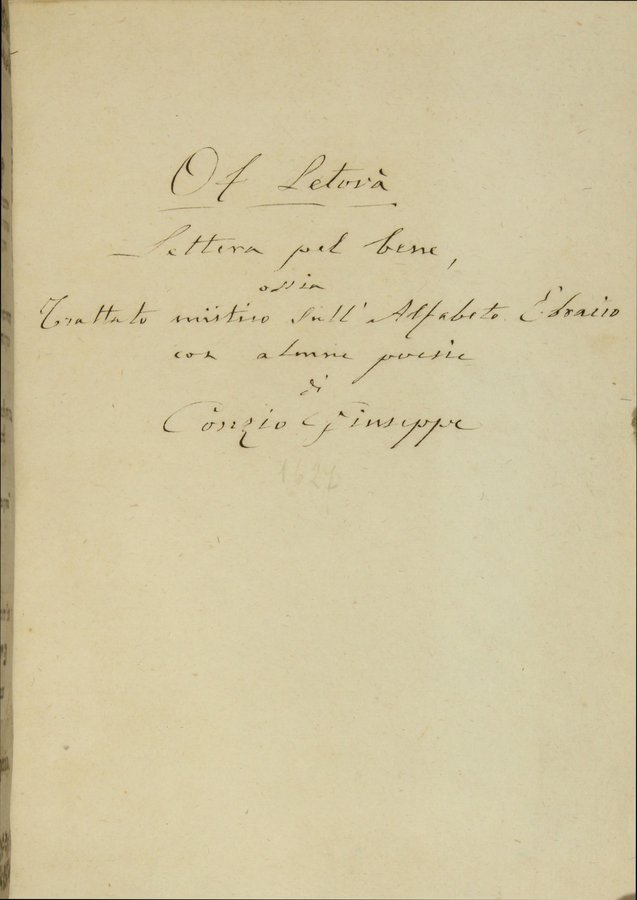 Ot Letovà
Lettera pel bene,
ossia
Trattato mistico sull' Alfabeto Ebraico
con alcune poesie
di
Conzio Giuseppe
1627